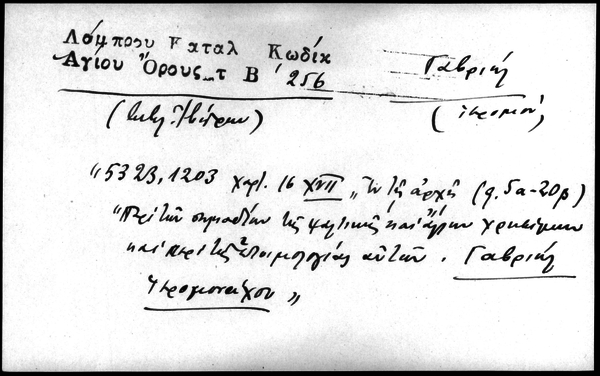 Λάμπρου Καταλ Κωδίκ
Αγίου Όρους τ Β 256
Γαβριήλ
(ἱερομον)
(Ἰβήρων)
"5323, 1203 χαρτ. 16 XVII "Ἐν τῇ ἀρχῇ (φ. 5α-20β)
"Περὶ τῶν σημαδίων τῆς ψαλτικῆς καὶ ἄλλων χρησίμων
καὶ περὶ τῆς ἐτοιμολογίας αὐτῶν. Γαβριὴλ
ἱερομονάχου"